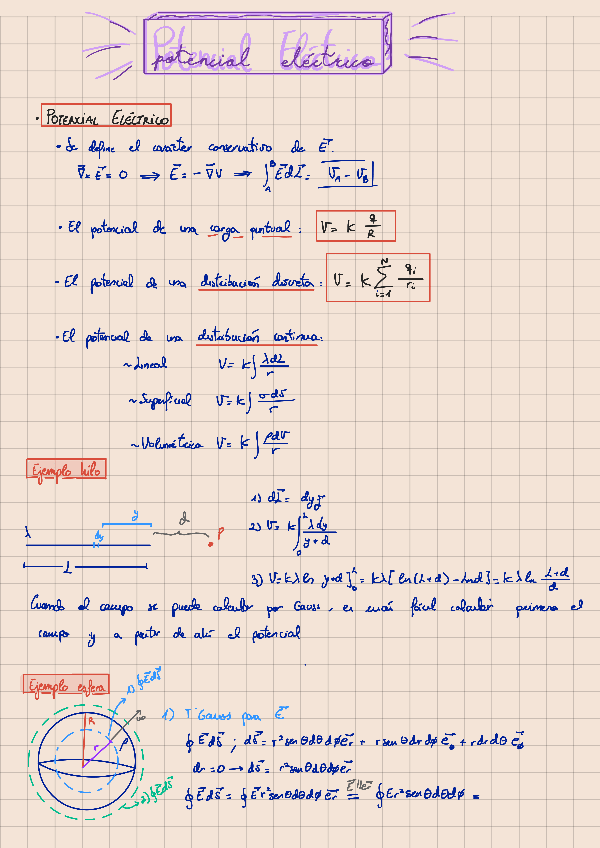 Potencial Eléctrico
potencial eléctrico
· POTENCIAL ELÉCTRICO
· Se define el carácter conservativo de E⃗.
∇⃗×E⃗ = 0 ⟹ E⃗ = -∇⃗V ⟹ ∫_A^B E⃗dL⃗ = V_A - V_B
· El potencial de una carga puntual: V = k q/R
- El potencial de una distribución discreta: V = k ∑_{i=1}^{N} q_i/r_i
· El potencial de una distribución continua:
~Lineal V = k∫ λdL/r
~Superficial V = k∫ σdS/r
~Volumétrica V = k∫ ρdV/r
Ejemplo hilo
λ dy y d P
L
1) dL⃗ = dy ȷ⃗
2) V = k∫_0^L λdy/(y+d)
3) V = kλ ln y+d]_0^L = kλ[ln(L+d) - ln d] = kλ ln (L+d)/d
Cuando el campo se puede calcular por Gauss, es más fácil calcular primero el
campo y a partir de ahí el potencial
Ejemplo esfera
1) ∮E⃗dS⃗
R r ρ ∞
2) ∮E⃗dS⃗
1) Tª Gauss para E⃗
∮E⃗dS⃗ ; dS⃗ = r² senθdθdϕe⃗r + r senθdrdϕ e⃗_θ + rdrdθ e⃗_ϕ
dr = 0 → dS⃗ = r² senθdθdϕe⃗r
∮E⃗dS⃗ = ∮E⃗r² senθdθdϕ e⃗r = E⃗∥e⃗r ∮Er² senθdθdϕ =